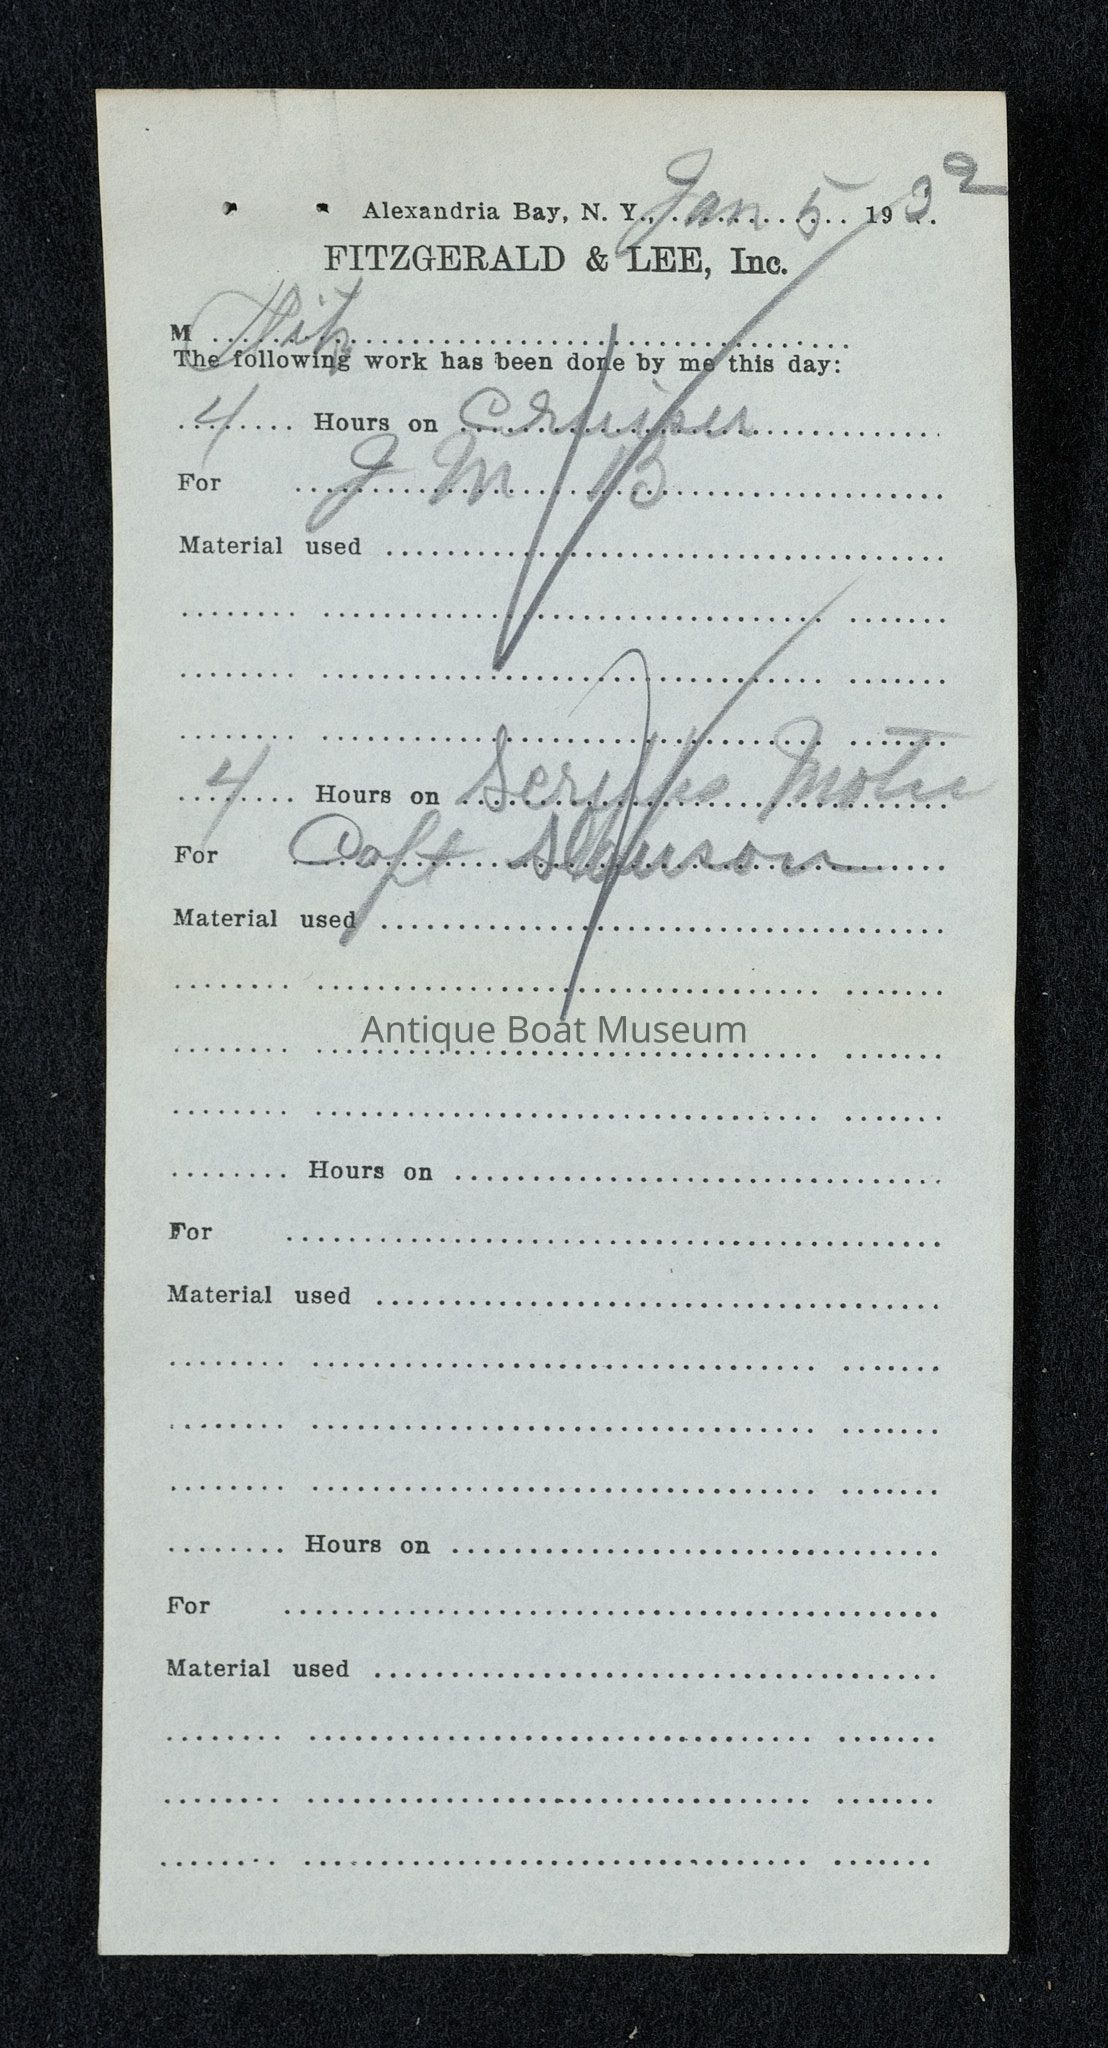 Alexandria Bay, N. Y., Jan 5 1932
FITZGERALD & LEE, Inc.
M
The following work has been done by me this day:
4 Hours on Cruiser
For J M B
Material used
4 Hours on Scripps Motor
For Capt
Material used
Antique Boat Museum
Hours on
For
Material used
Hours on
For
Material used